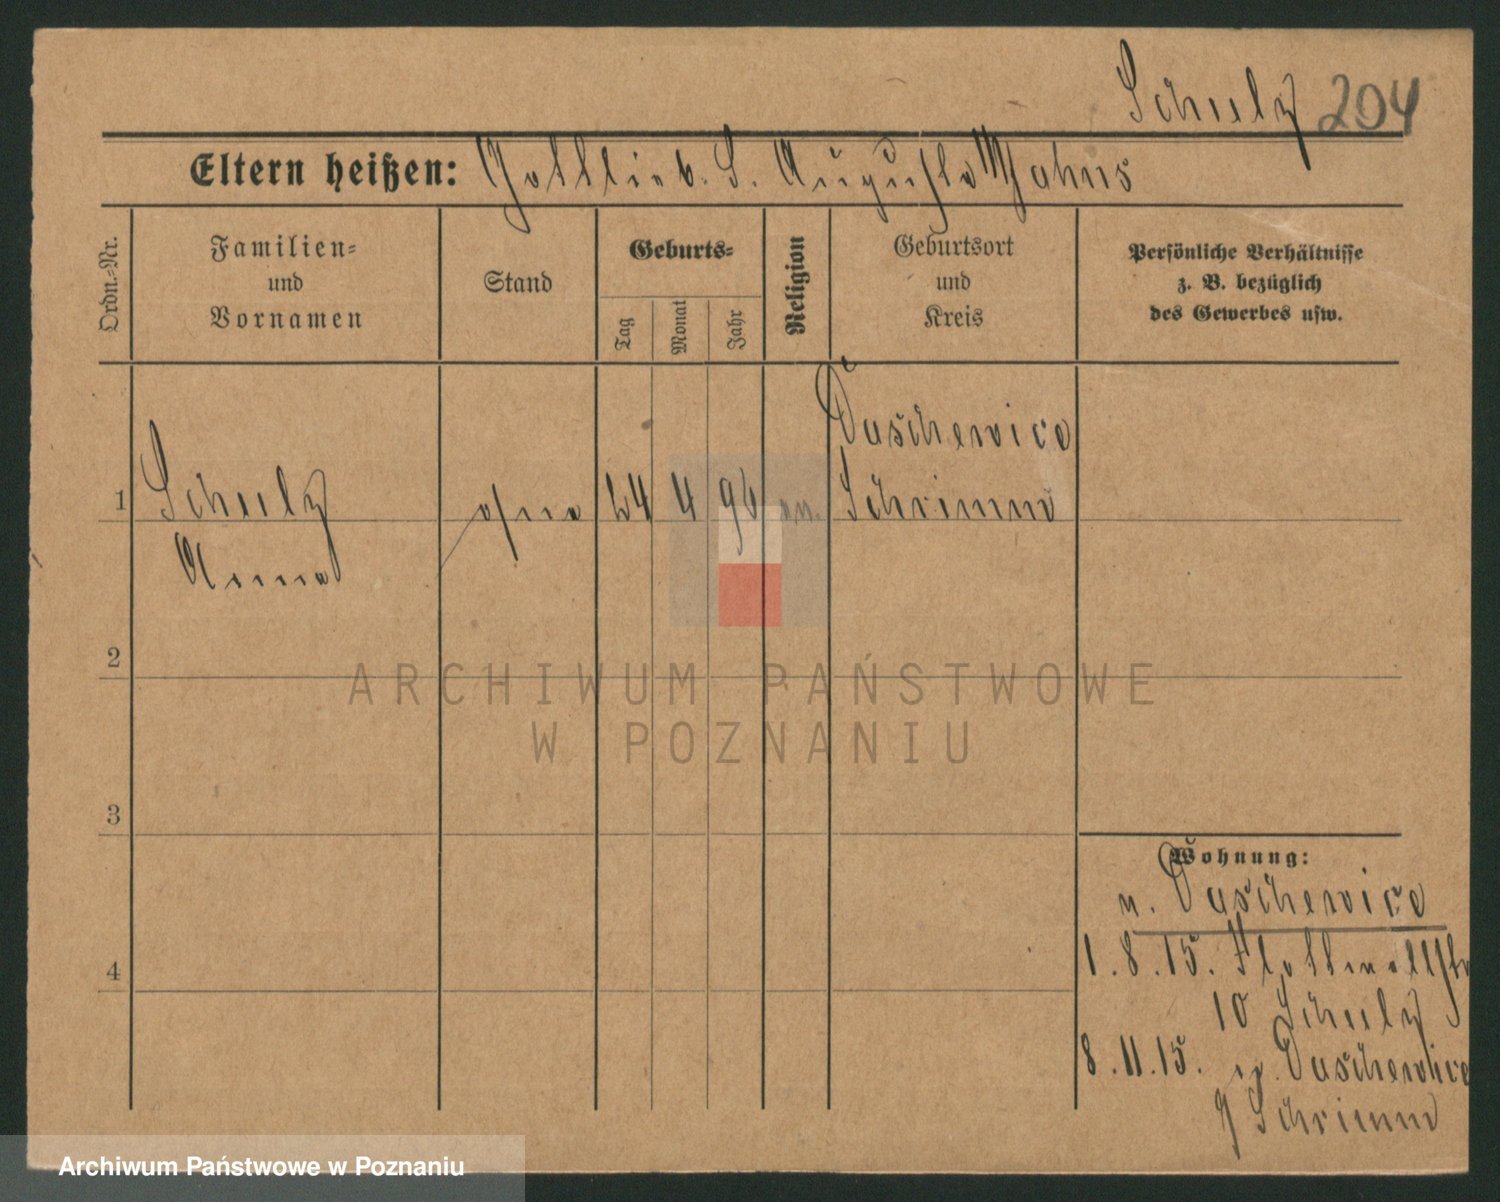 Schulz 204
Eltern heißen: Gottlieb. S. Auguste Jahns
Ordn.-Nr.
Familien-
und
Vornamen
Stand
Geburts-
Tag
Monat
Jahr
Religion
Geburtsort
und
Kreis
Persönliche Verhältnisse
z. B. bezüglich
des Gewerbes usw.
Daschewice
1 Schulz ohne 24 4 96 ev. Schrimm
Anna
2
3
4
ARCHIWUM PAŃSTWOWE
W POZNANIU
Wohnung:
v. Daschewice
1.8.15. Flottwellstr
10 Schulz
8.11.15. Daschewice
Schrimm
Archiwum Państwowe w Poznaniu